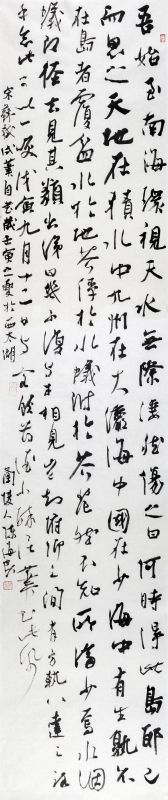 吾始至南海環視天水無際悽然傷之曰何時得此島耶已
而思之天地在積水中九州在大瀛海中中國在少海中有生孰不
在島者覆盆水於地芥浮於水蟻附於芥茫然不知所濟少焉水涸
蟻即徑去見其類出涕曰幾不復與子相見豈知俯仰之間有方軌八達之路
乎念此可以一笑戊寅九月十二日與客飲薄酒小醉信筆書此紙
宋蘇軾試筆自書歲壬寅之夏於西太湖
蘭陵人陳海良